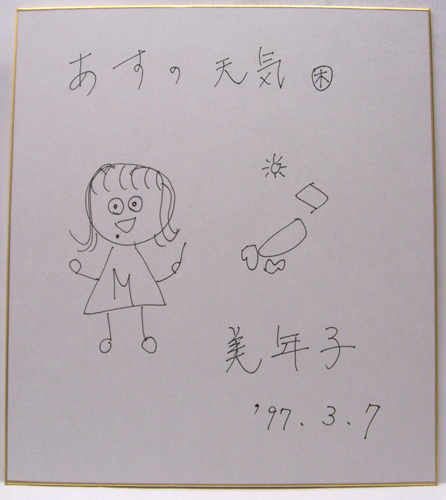 あすの天気 木
M
美年子
'97.3.7